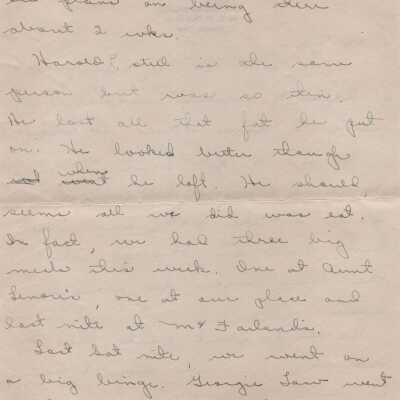 plans on being there
about 2 wks.
Harold? still is the same
person but was so thin.
He lost all that fat he put
on. He looked better though
when he left. He should,
seems all we did was eat.
In fact, we had three big
meals this week. One at Aunt
Lenore's, one at our place and
last nite at McFarland's.
Last Sat nite, we went on
a big binge. Georgie Law went